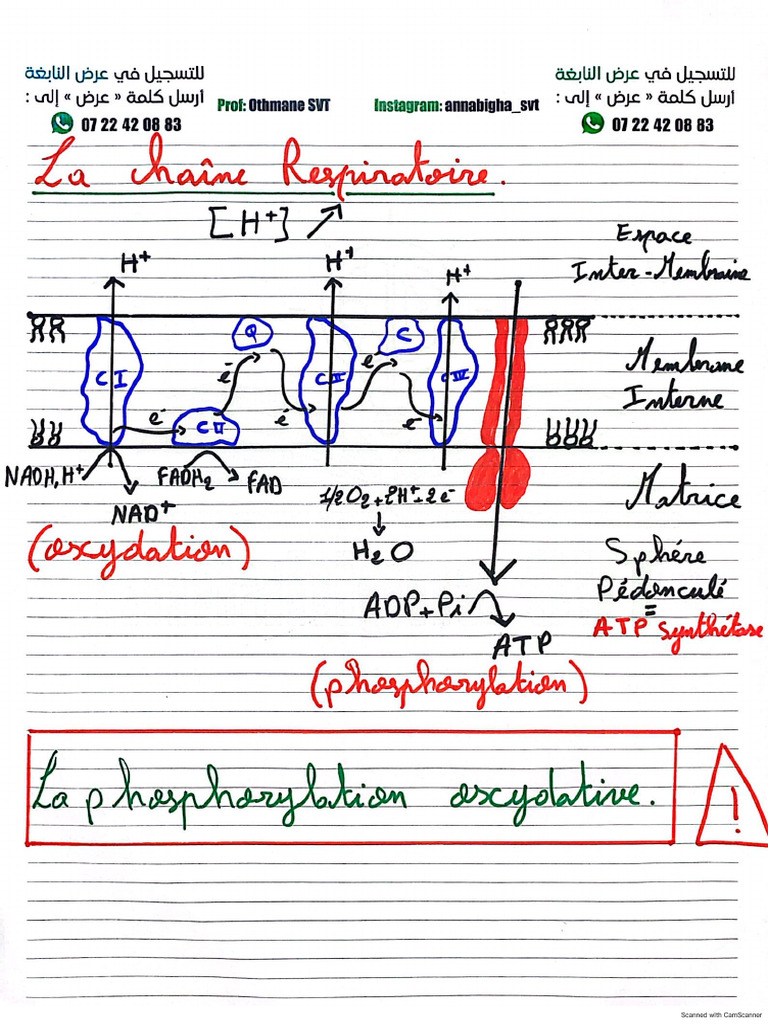 للتسجيل في عرض النابغة
أرسل كلمة « عرض » إلى :
07 22 42 08 83
Prof: Othmane SVT
Instagram: annabigha_svt
للتسجيل في عرض النابغة
أرسل كلمة « عرض » إلى :
07 22 42 08 83
La chaîne Respiratoire.
[H+]
Espace
Inter-Membraine
H+
H+
H+
CI
e-
CII
e-
Q
e-
CII
e-
C
e-
CIV
Membrane
Interne
NADH,H+
NAD+
FADH2
FAD
1/2O2+2H++2e-
H2O
Matrice
(oxydation)
Sphére
Pédonculé
=
ATP synthétase
ADP+Pi
ATP
(phosphorylation)
La phosphorylation oxcydative.
!
Scanned with CamScanner